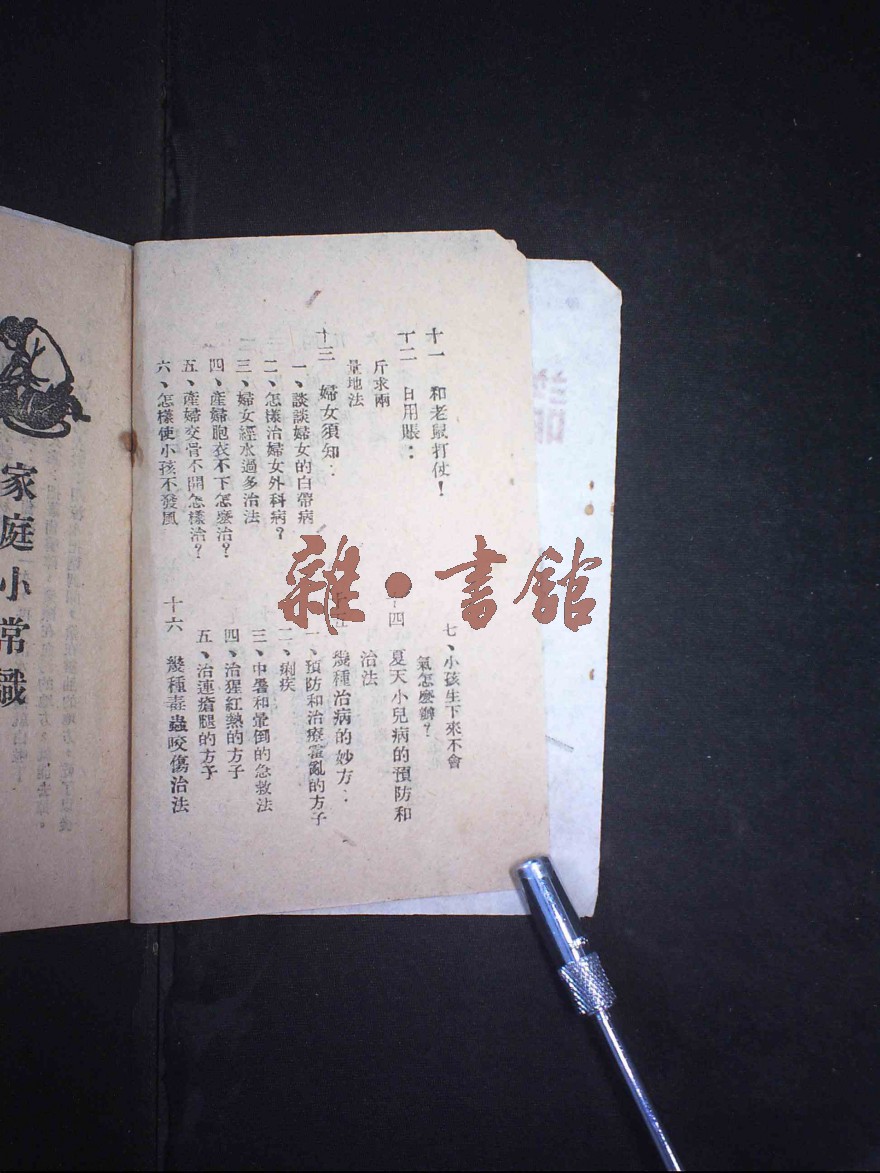 十一 和老鼠打仗！
十二 日用賬：
斤求兩
量地法
十三 婦女須知：
一、談談婦女的白帶病
二、怎樣治婦女外科病？
三、婦女經水過多治法
四、產婦胞衣不下怎麼治？
五、產婦交骨不開怎樣治？
六、怎樣使小孩不發風
七、小孩生下來不會
氣怎麼辦？
十四 夏天小兒病的預防和
治法
十五 幾種治病的妙方：
一、預防和治療霍亂的方子
二、痢疾
三、中暑和暈倒的急救法
四、治猩紅熱的方子
五、治連瘡腿的方子
十六 幾種毒蟲咬傷治法
家庭小常識
雜·書館